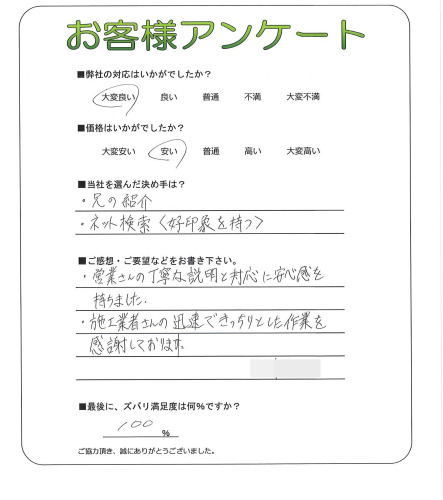 お客様アンケート
■弊社の対応はいかがでしたか？
大変良い 良い 普通 不満 大変不満
■価格はいかがでしたか？
大変安い 安い 普通 高い 大変高い
■当社を選んだ決め手は？
・兄の紹介
・ネット検索〈好印象を持つ〉
■ご感想・ご要望などをお書き下さい。
・営業さんの丁寧な説明と対応に安心感を
持ちました.
・施工業者さんの迅速できっちりとした作業を
感謝しております。
■最後に、ズバリ満足度は何%ですか？
100 %
ご協力頂き、誠にありがとうございました。